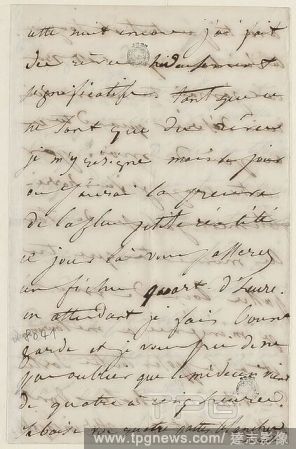 cette nuit encore j'ai fait
des rêves hideusement
significatifs tant que ce
ne sont que des rêves
je m'y résigne mais le jour
où j'aurai la preuve
de la plus petite réalité
ce jour là vous passerez
un fichu quart d'heure.
en attendant je fais bonne
garde et je vous prie de ne
pas oublier que le médecin vient
de quatre à cinq heures
8841
TPG
www.tpgnews.com 達志影像